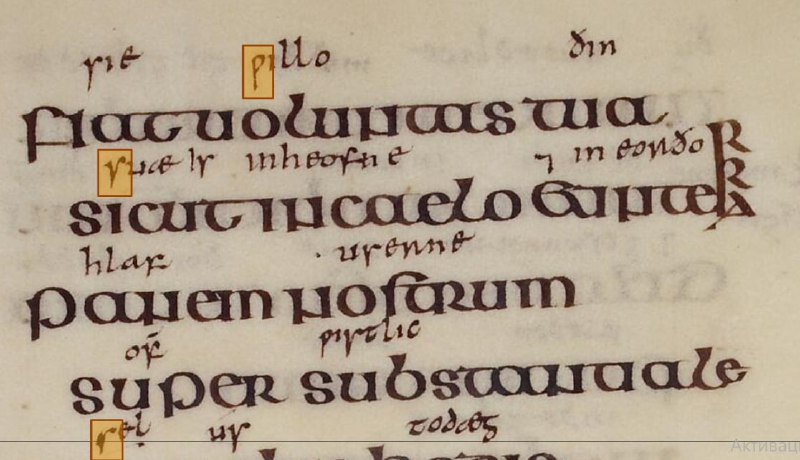 sie ƿillo ðin
fiat uoluntas tua
suæ is in heofne ⁊ in eorðo
sicut in caelo et in terra
hlaf userne
panem nostrum
of' ƿistlic
super substantiale
sel us todæg